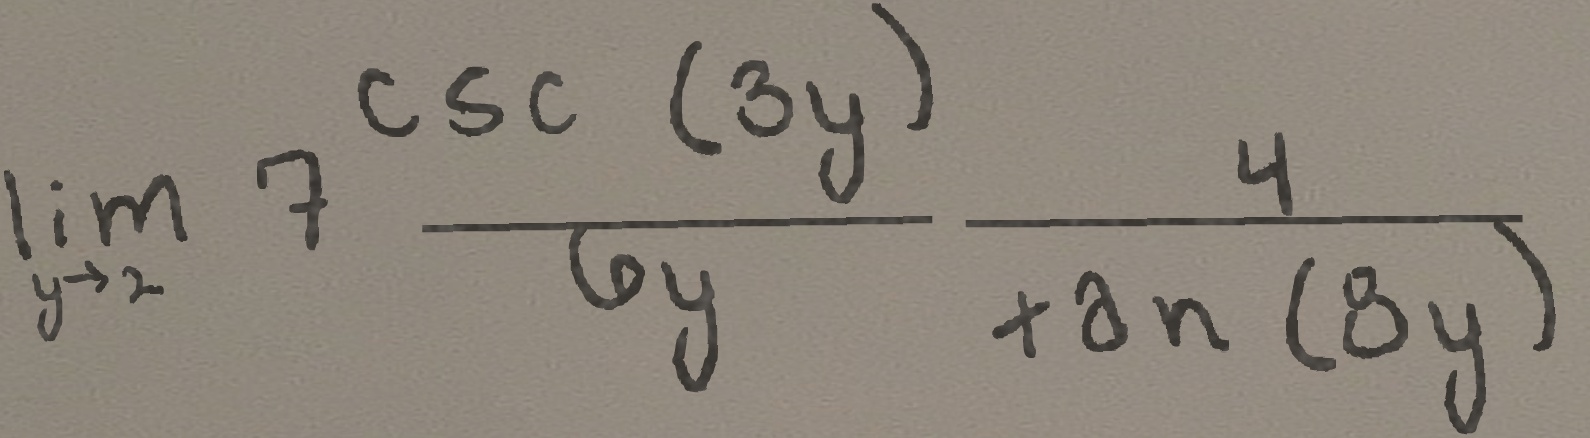 \lim_{y \to 2} 7 \frac{\csc(3y)}{6y} \frac{4}{\tan(8y)}